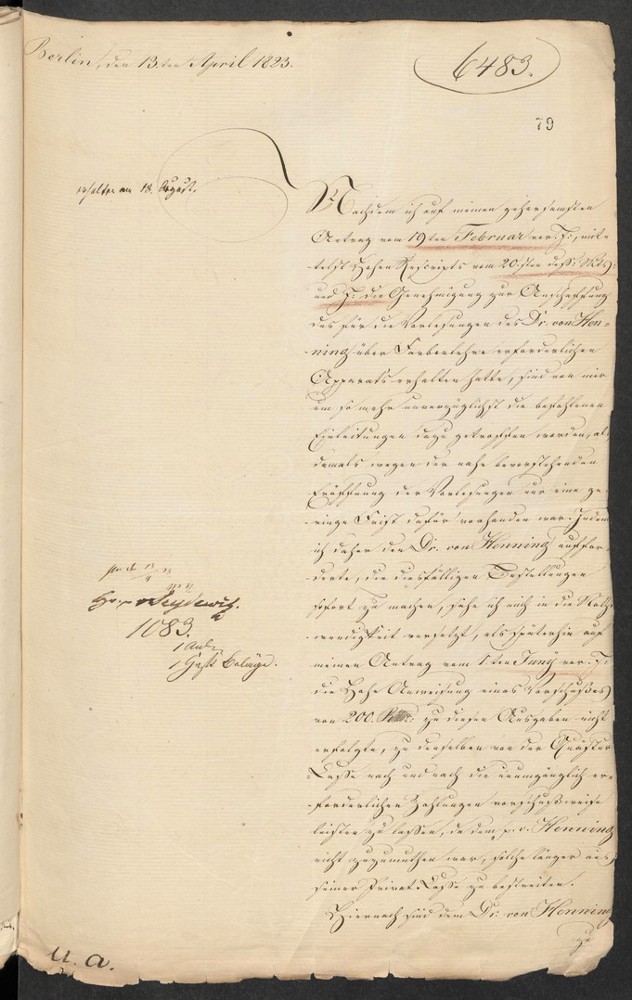 Berlin, den 13ten April 1823.
6483.
79
erhalten am 18. August.
Nachdem ich auf meinen gehorsamsten
Antrag vom 19ten Februar vor. J., mit-
telst Hohen Rescripts vom 20sten dess. Mts.
und J. die Genehmigung zur Anschaffung
des für die Vorlesungen des Dr. von Hen-
ning über Farbenlehre erforderlichen
Apparats erhalten hatte, sind von mir
um so mehr unverzüglichst die befohlenen
Einleitungen dazu getroffen worden, als
damals wegen der nahe bevorstehenden
Eröffnung der Vorlesungen nur eine ge-
ringe Frist dafür vorhanden war. Indem
ich daher den Dr. von Henning auffor-
derte, die diesfälligen Bestellungen
sofort zu machen, sahe ich mich in die Noth-
wendigkeit versetzt, als späterhin auf
meinen Antrag vom 1ten Juny vor. J.
die Hohe Anweisung eines Vorschußes
von 200. zu diesen Ausgaben nicht
erfolgte, zu denselben von der Quästur
Casse nach und nach die unumgänglich er-
forderlichen Zahlungen vorschußweise
leisten zu lassen, da dem p. v. Henning
nicht zuzumuthen war, solche länger aus
seiner Privat Casse zu bestreiten.
Hiernach sind dem Dr. von Henning
zu
v Seydewitz.
1083.
1 Anl.
1 Heft Beläge.
u. a.